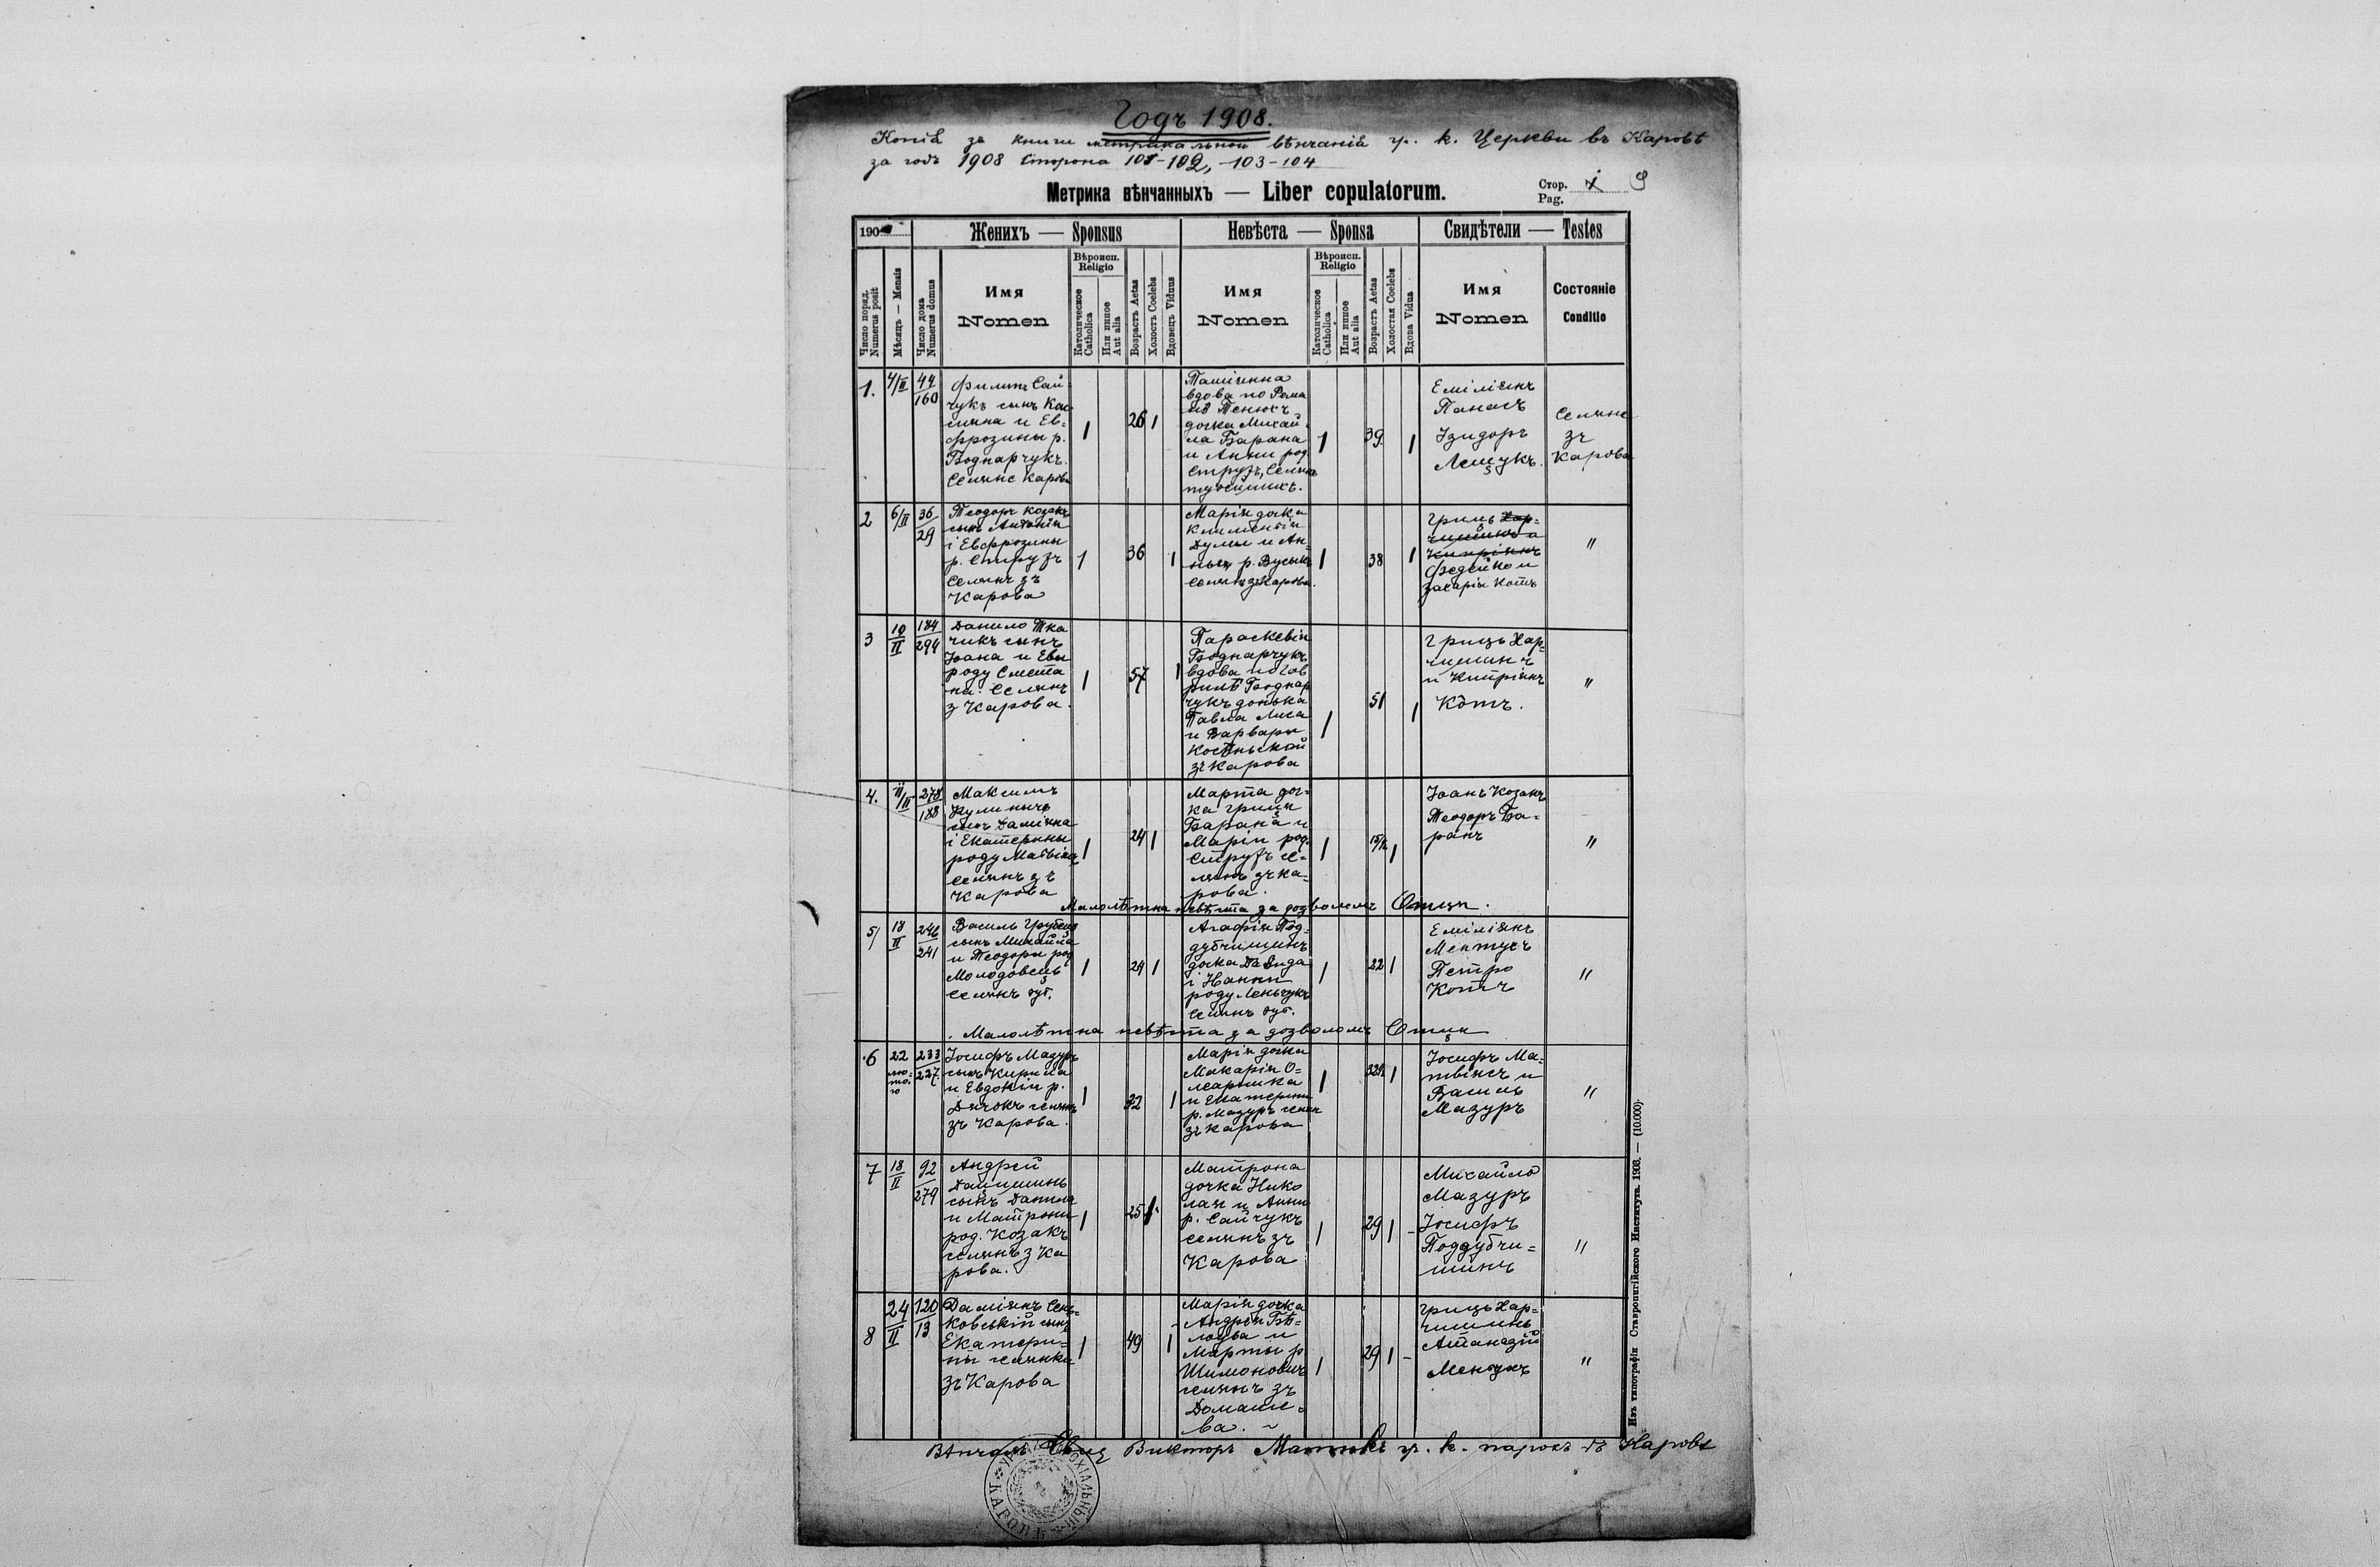 Годъ 1908.
Копія зъ книги метрикальной вѣнчаній гр. к. Церкви въ Каровѣ
за годъ 1908 сторона 101-102, -103-104
Метрика вѣнчанныхъ — Liber copulatorum.
Стор. 9
Pag.
190
Женихъ — Sponsus
Невѣста — Sponsa
Свидѣтели — Testes
Число поряд.
Numerus posit
Мѣсяцъ — Mensis
Число дома
Numerus domus
Имя
Nomen
Вѣроисп.
Religio
Католическое
Catholica
Или иное
Aut alia
Возрастъ Aetas
Холостъ Coelebs
Вдовецъ Viduus
Имя
Nomen
Вѣроисп.
Religio
Католическое
Catholica
Или иное
Aut alia
Возрастъ Aetas
Холостая Coelebs
Вдова Vidua
Имя
Nomen
Состояніе
Conditio
1.
4/II
44
160
Филипъ Сай-
чукъ сынъ Кас
сіяна и Ев-
фрозины р.
Боднарчукъ.
Селяне Карова
1
26
1
вдова по Рома
нѣ
дочка Михай-
ла Барана
и Анни род.
Струзъ, Селянъ
тутейшихъ.
1
39
1
Еміліянъ
Панасъ
Ізидоръ
Лещукъ.
Селяне
зъ
Карова
2
6/II
36
29
Теодоръ Козакъ
сынъ Антонія
і Евфрозины
р. Струзъ
Селянъ зъ
Карова
1
36
1
Марія дочка
Климентія
Думы и Ан-
ны р. Вусыкъ
селянъ з Карова.
1
38
1
Грицъ Хар-
чишинъ а
Кипріянъ
Федейко и
Захарія Котъ
"
3
10
II
184
294
Данило Тка
чикъ сынъ
Іоана и Евы
роду Смета
на. Селянъ
з Карова.
1
57
1
Параскевія
Боднарчукъ
вдова по Гав
рилѣ Боднар
чукъ донька
Павла Лиса
и Варвары
зъ Карова
1
51
1
Грицъ Хар-
чишинъ
и Кипріянъ
Котъ.
"
4.
11/II
278
188
Максимъ
Кулиничъ
сынъ Даміяна
і Екатерины
роду Матвіецъ
Селянъ зъ
Карова
1
24
1
Марта доч-
ка Гриця
Барана и
Маріи род.
Струзъ се-
лянъ зъ Ка-
рова.
1
1
Іоанъ Козакъ
Теодоръ Ба-
ранъ
"
Малолѣтна невѣста за дозволомъ Отця.
5/
18
II
246
241
Василь
сынъ Михайла
и Теодоры род
Молодовецъ
Селянъ тут.
1
24
1
Агафія Под-
дубчишинъ
дочка Давида
і Нанни
роду Леньчукъ
Селянъ тут.
1
22
1
Еміліянъ
Ментухъ
Петро
Котъ
"
Малолѣтна невѣста за дозволомъ Отця
6
22
лю-
то-
го
233
237
Іосифъ Мазуръ
сынъ Кирила
и Евдокіи р.
Дячокъ селянъ
зъ Карова.
1
32
1
Марія дочка
Макарія О-
леарника
и Екатерини
р. Мазуръ селян
зъ Карова
1
22½
1
Іосифъ Ма-
твіецъ и
Василь
Мазуръ
"
7
18
II
92
279
Андрей
Дацишинъ
сынъ Данила
и Матроны
род. Козакъ
селянъ з Ка
рова.
1
25
1
Матрона
дочка Нико
лая и Анни
р. Сайчукъ
селянъ зъ
Карова
1
29
1
Михайло
Мазуръ
Іосифъ
Поддубчи-
шинъ
"
8
24
II
120
13
Даміянъ Сень-
ковський сынъ
Екатери-
ны селянки
зъ Карова
1
49
1
Марія дочка
Андрея Бѣ-
лоуса и
Марты р.
Шимоновичъ
селянъ зъ
Домаше-
ва.
1
29
1
Грицъ Хар-
чишинъ
Атаназій
"
Вѣнчалъ Викторъ гр. к. парохъ въ Каровѣ
КАРОВѢ
Изъ типографіи Ставропигійского Института. 1903. — (10.000)·